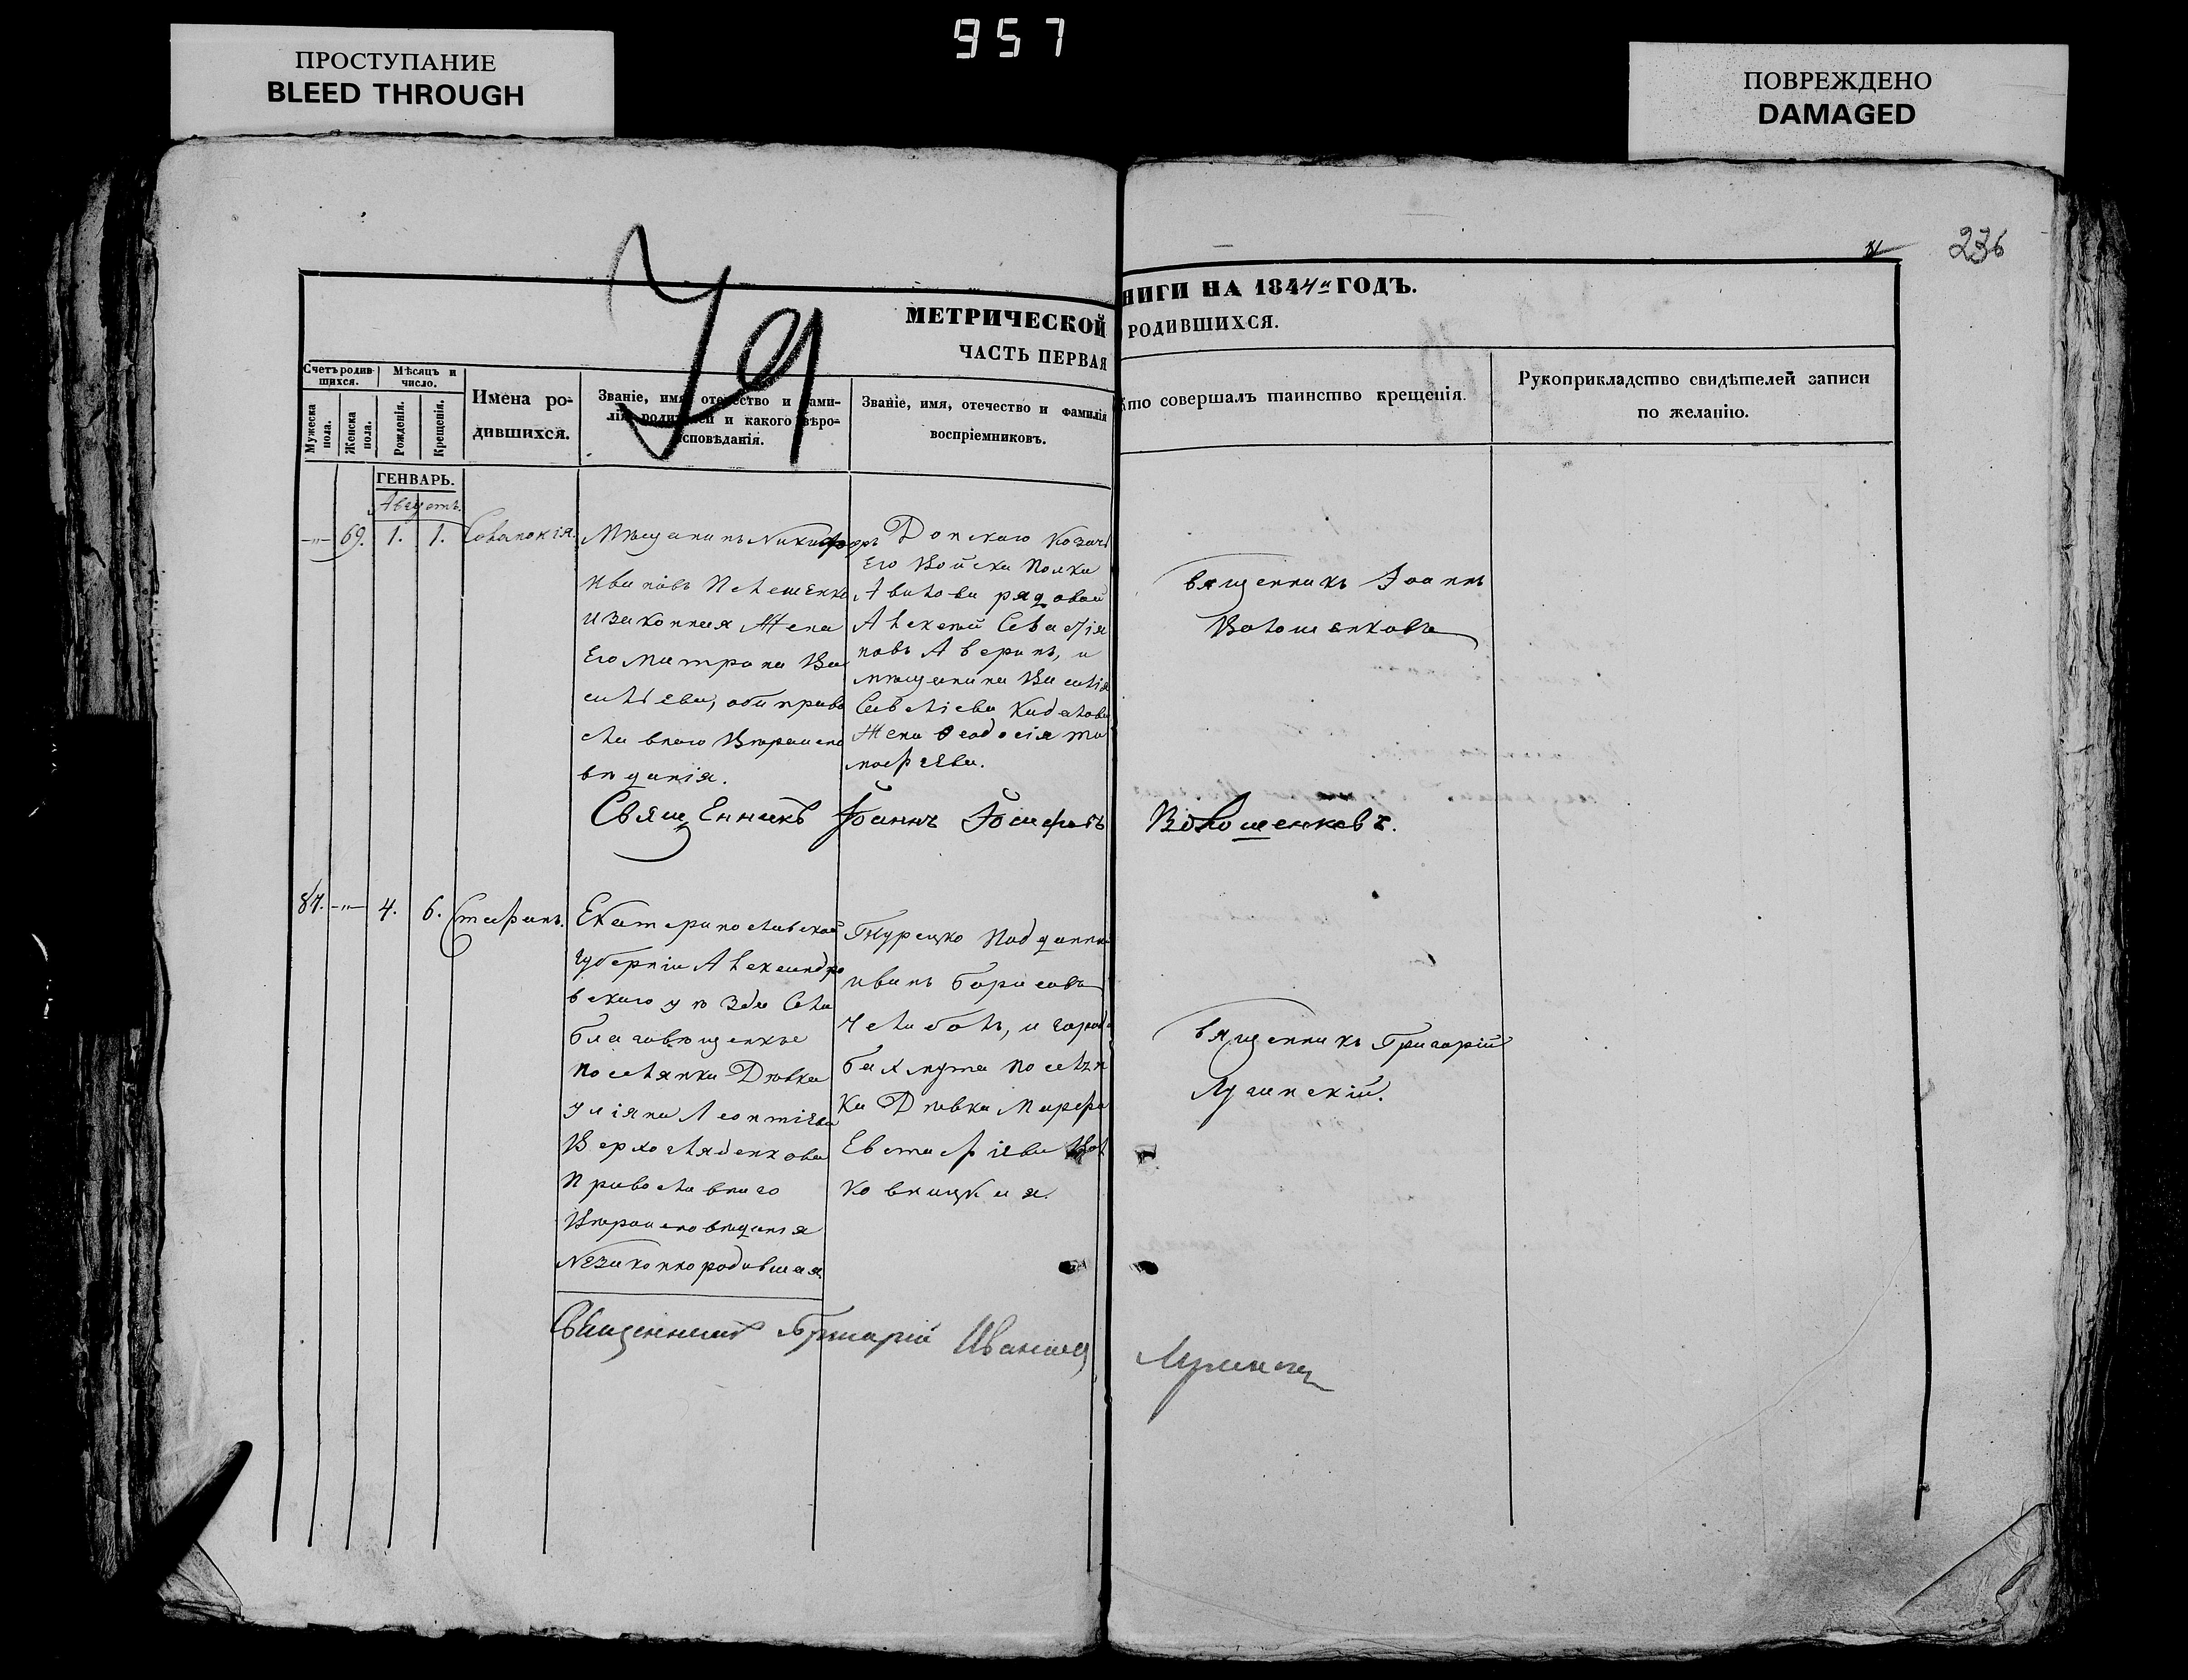 957
ПРОСТУПАНИЕ
BLEED THROUGH
ПОВРЕЖДЕНО
DAMAGED
236
79
МЕТРИЧЕСКОЙ
НИГИ НА 1844 ГОДЪ.
ЧАСТЬ ПЕРВАЯ
РОДИВШИХСЯ.
Счетъ родив-
шихся.
Мужеска
пола.
Женска
пола.
Мѣсяцъ и
число.
Рожденія.
Крещенія.
Имена ро-
дившихся.
Званіе, имя, отечество и фами-
лія родителей и какого вѣро-
исповѣданія.
Званіе, имя, отечество и фамилія
воспріемниковъ.
Кто совершалъ таинство крещенія.
Рукоприкладство свидѣтелей записи
по желанію.
ГЕНВАРЬ.
Августъ.
69.
1.
1.
Мѣщанинъ Никифоръ
Ивановъ
и законная Жена
Его Матрона Ва
сильева, оба право
славнаго Вѣроиспо
вѣданія.
Донскаго Казачь
Его Войска Полка
рядовой
Алексей Севастія
новъ Аверинъ, и
мѣщанина Василія
Савеліева
Жена Феодосія Ти
мофѣева.
Священникъ Іоаннъ
Волошенковъ
Священникъ Іоаннъ Іосифовъ Волошенковъ.
84.
4.
6.
Стефанъ.
Екатеринославской
губерніи Александро
вскаго уѣзда Села
Благовѣщенкье
поселянка Дѣвка
Уліяна Леонтіева
Православнаго
Вѣроисповѣданія
Незаконнородившая
Турецко Подданны
Иванъ Борисовъ
Челибонъ, и города
Бахмута поселян
ка Дѣвка Марфа
Евстафіева
Священникъ Григорій
Лучинскій.
Священникъ Григорій Ивановъ